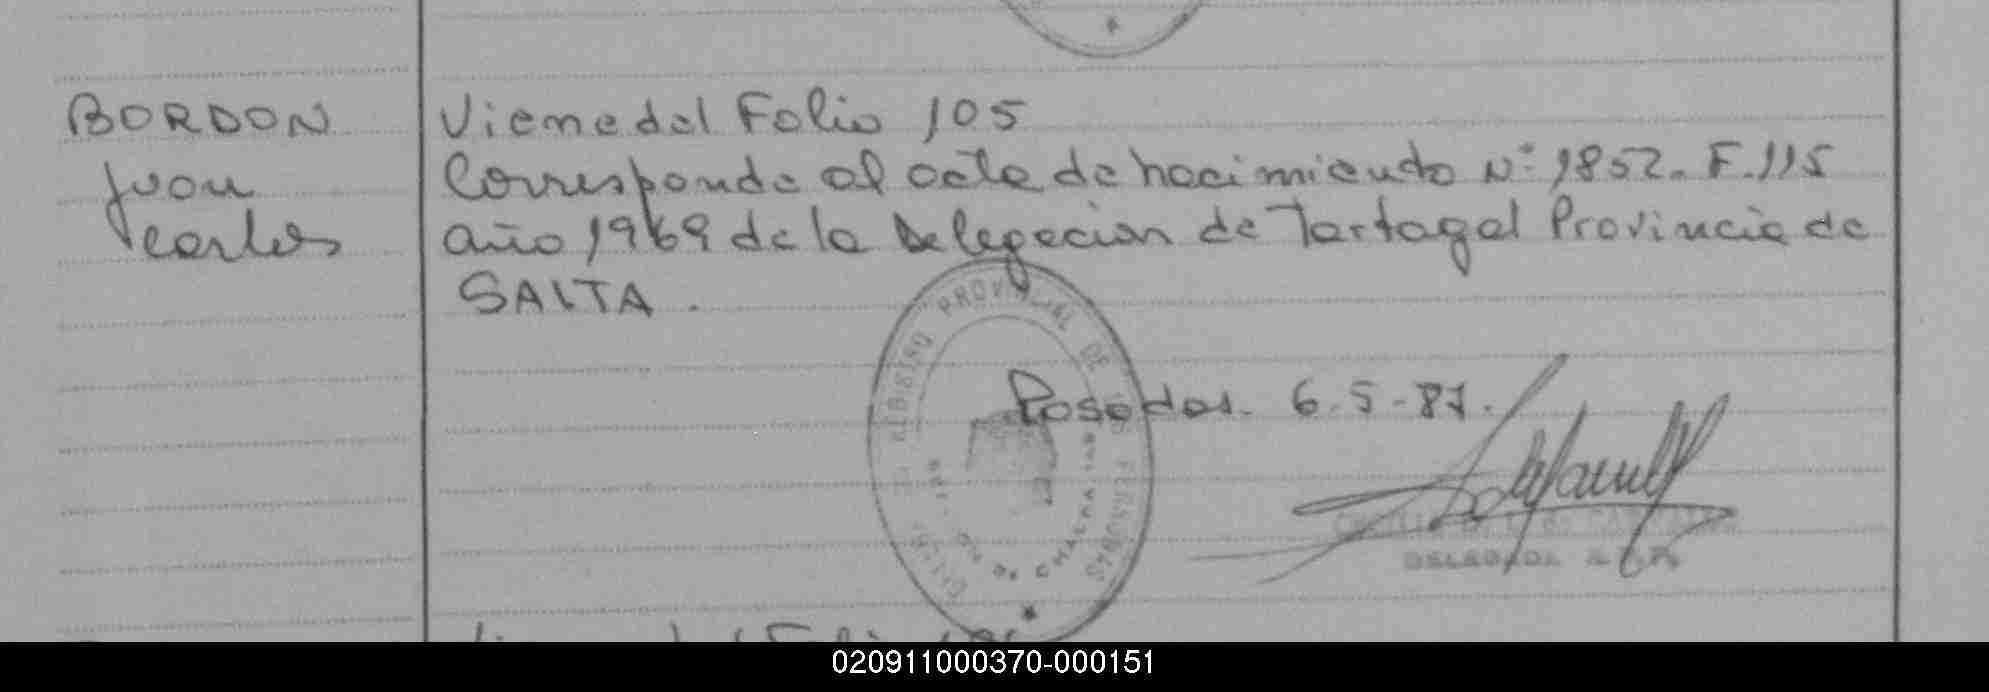 BORDON
Juan
Carlos
Viene del Folio 105
Corresponde al acta de nacimiento Nº 1852. F.115
año 1969 de la Delegacion de Tartagal Provincia de
SALTA.
PROVINCIAL DE
Posadas. 6.5-87.
DELEGADA
020911000370-000151